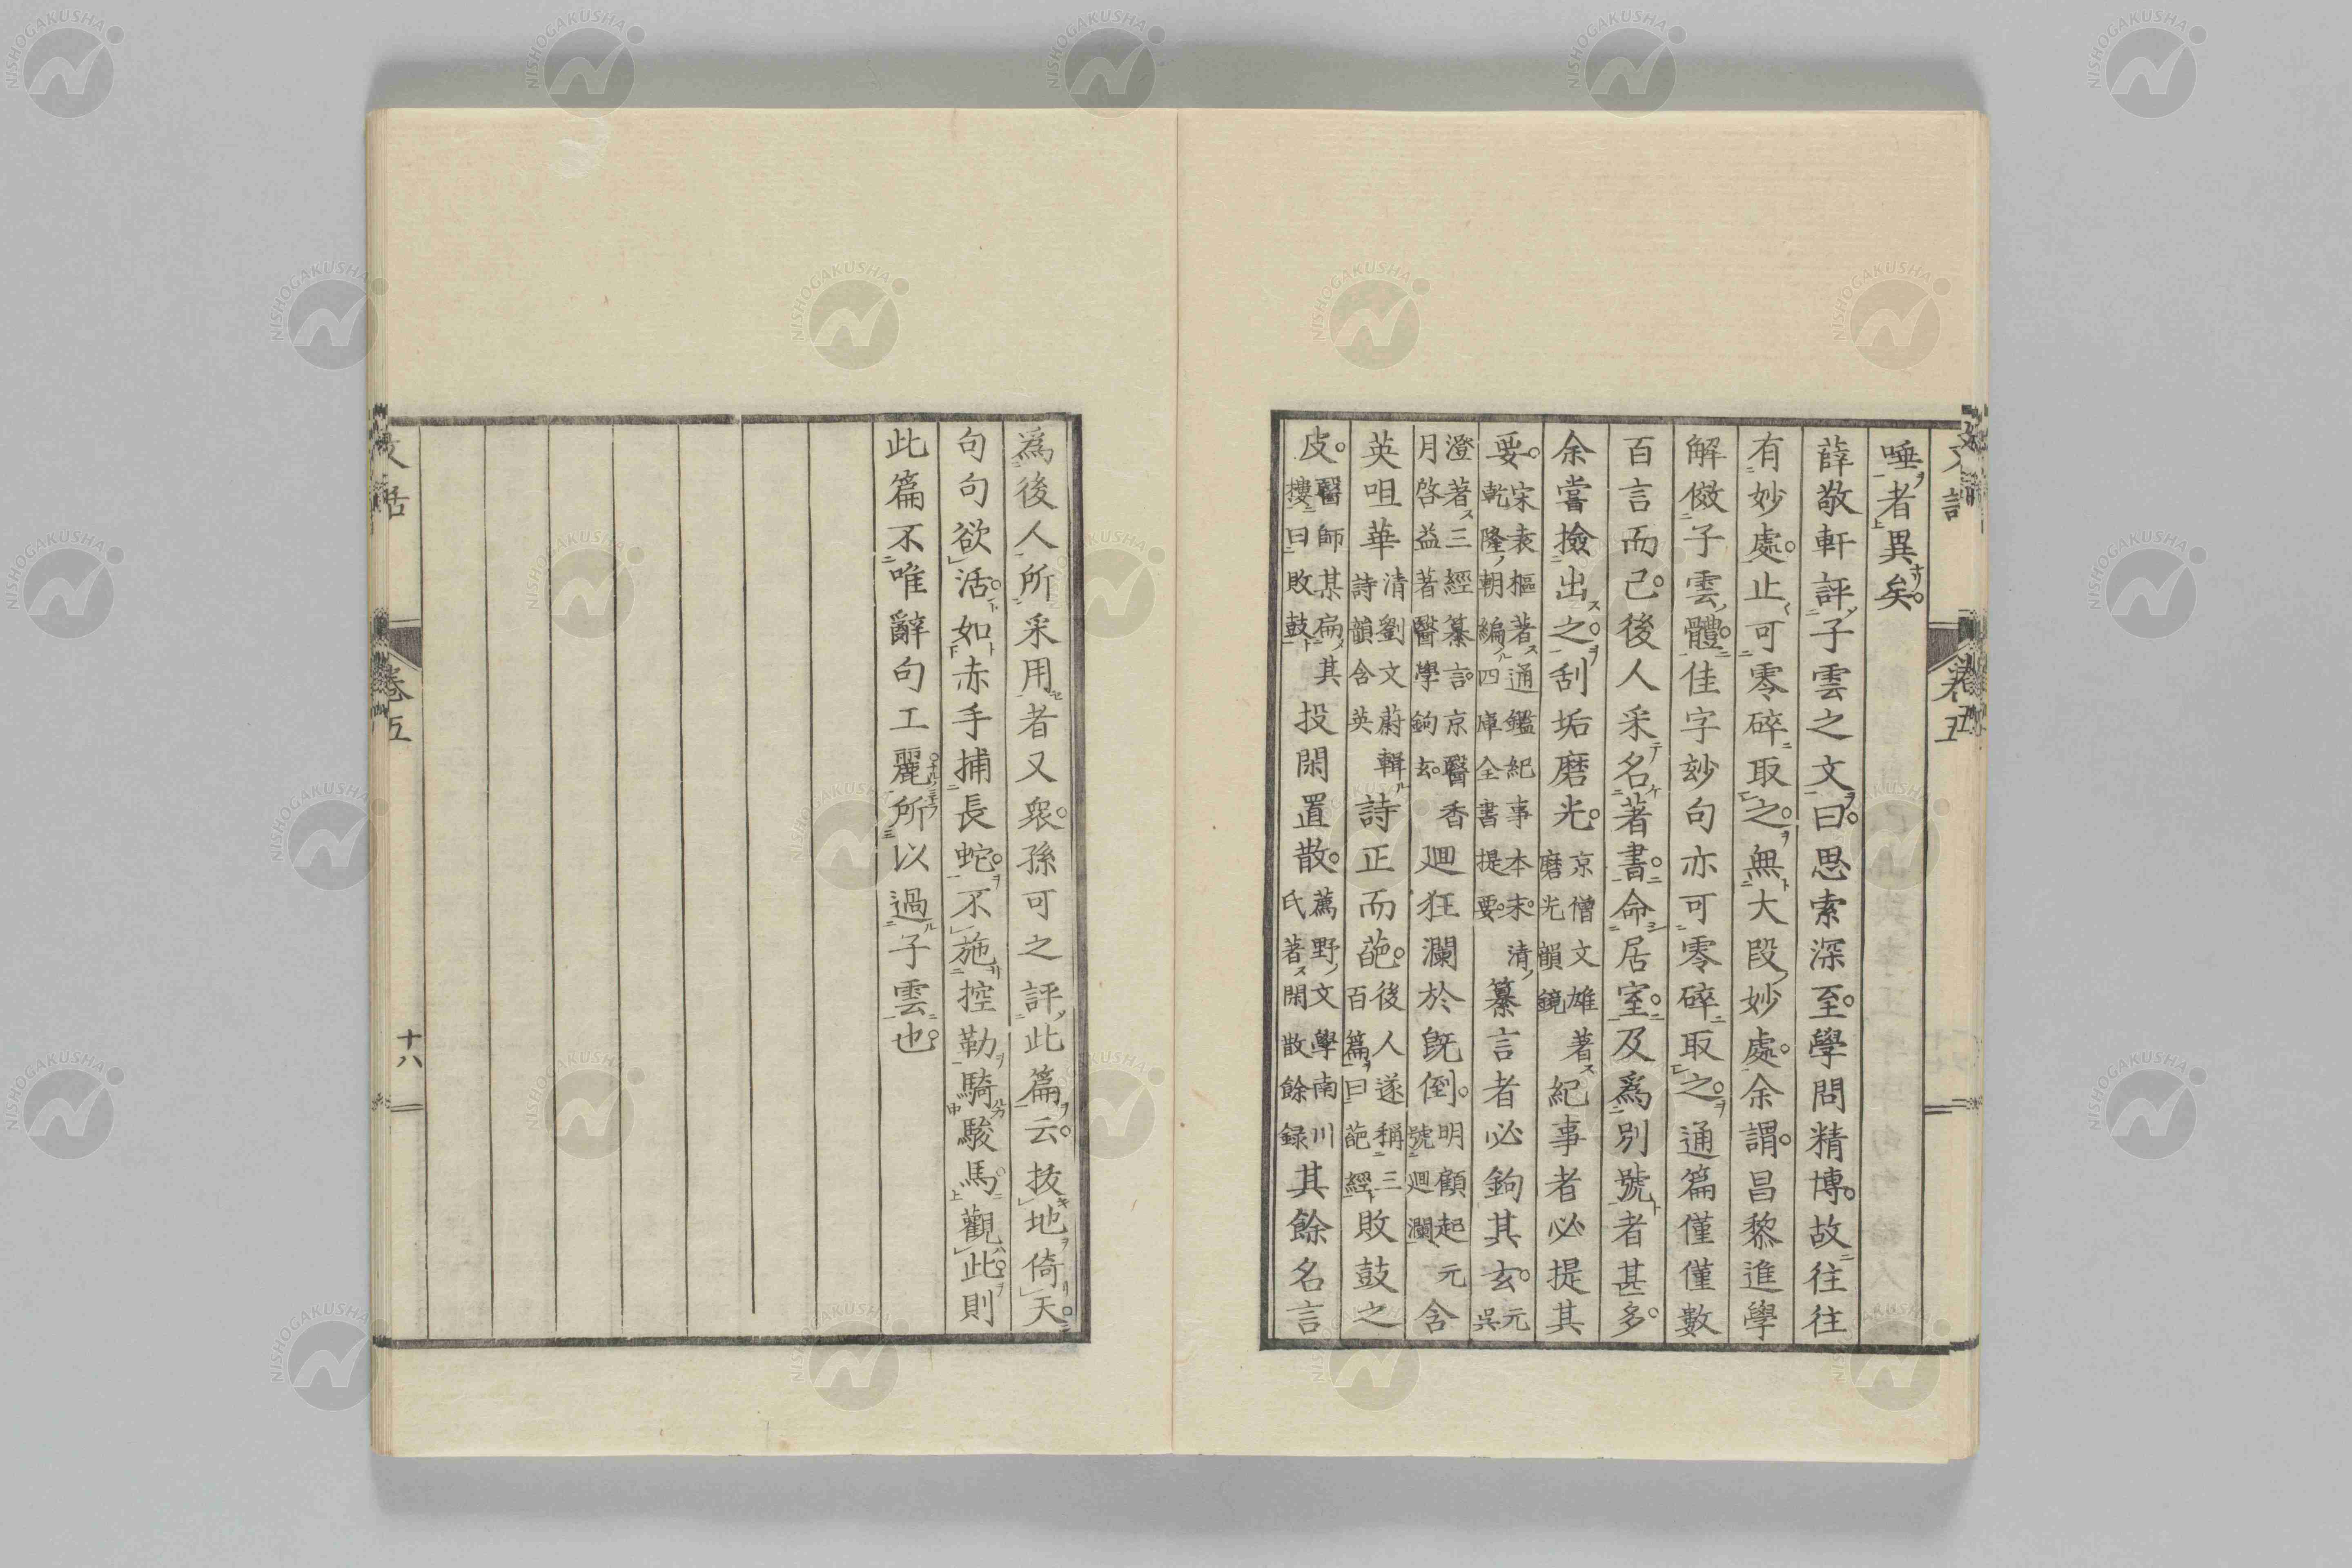 唾者異矣。
薛敬軒評子雲之文曰。思索深至。學問精博。故往往
有妙處。止可零碎取之。無大段妙處。余謂。昌黎進學
解倣子雲體。佳字妙句亦可零碎取之。通篇僅僅數
百言而已。後人采名著書。命居室。及爲別號者甚多。
余嘗撿出之。刮垢磨光。京僧文雄著磨光韻鏡紀事者必提其
要。宋袁樞著通鑑紀事本末。清乾隆朝編四庫全書提要。纂言者必鉤其玄。元吳
澄著三經纂言。京醫香月啓益著醫學鉤玄。廻狂瀾於旣倒。明顧起元號廻瀾含
英咀華清劉文蔚輯詩韻含英詩正而葩。後人遂稱三百篇曰葩經敗鼓之
皮。醫師某扁其摟曰敗鼓投閑置散。藁野文學南川氏著閑散餘録其餘名言
爲後人所采用者又衆。孫可之評此篇云。拔地倚天
句句欲活。如赤手捕長蛇。不施控勒騎駿馬。觀此則
此篇不唯辭句工麗。所以過子雲也。
文話
卷五
十八
NISHOGAKUSHA